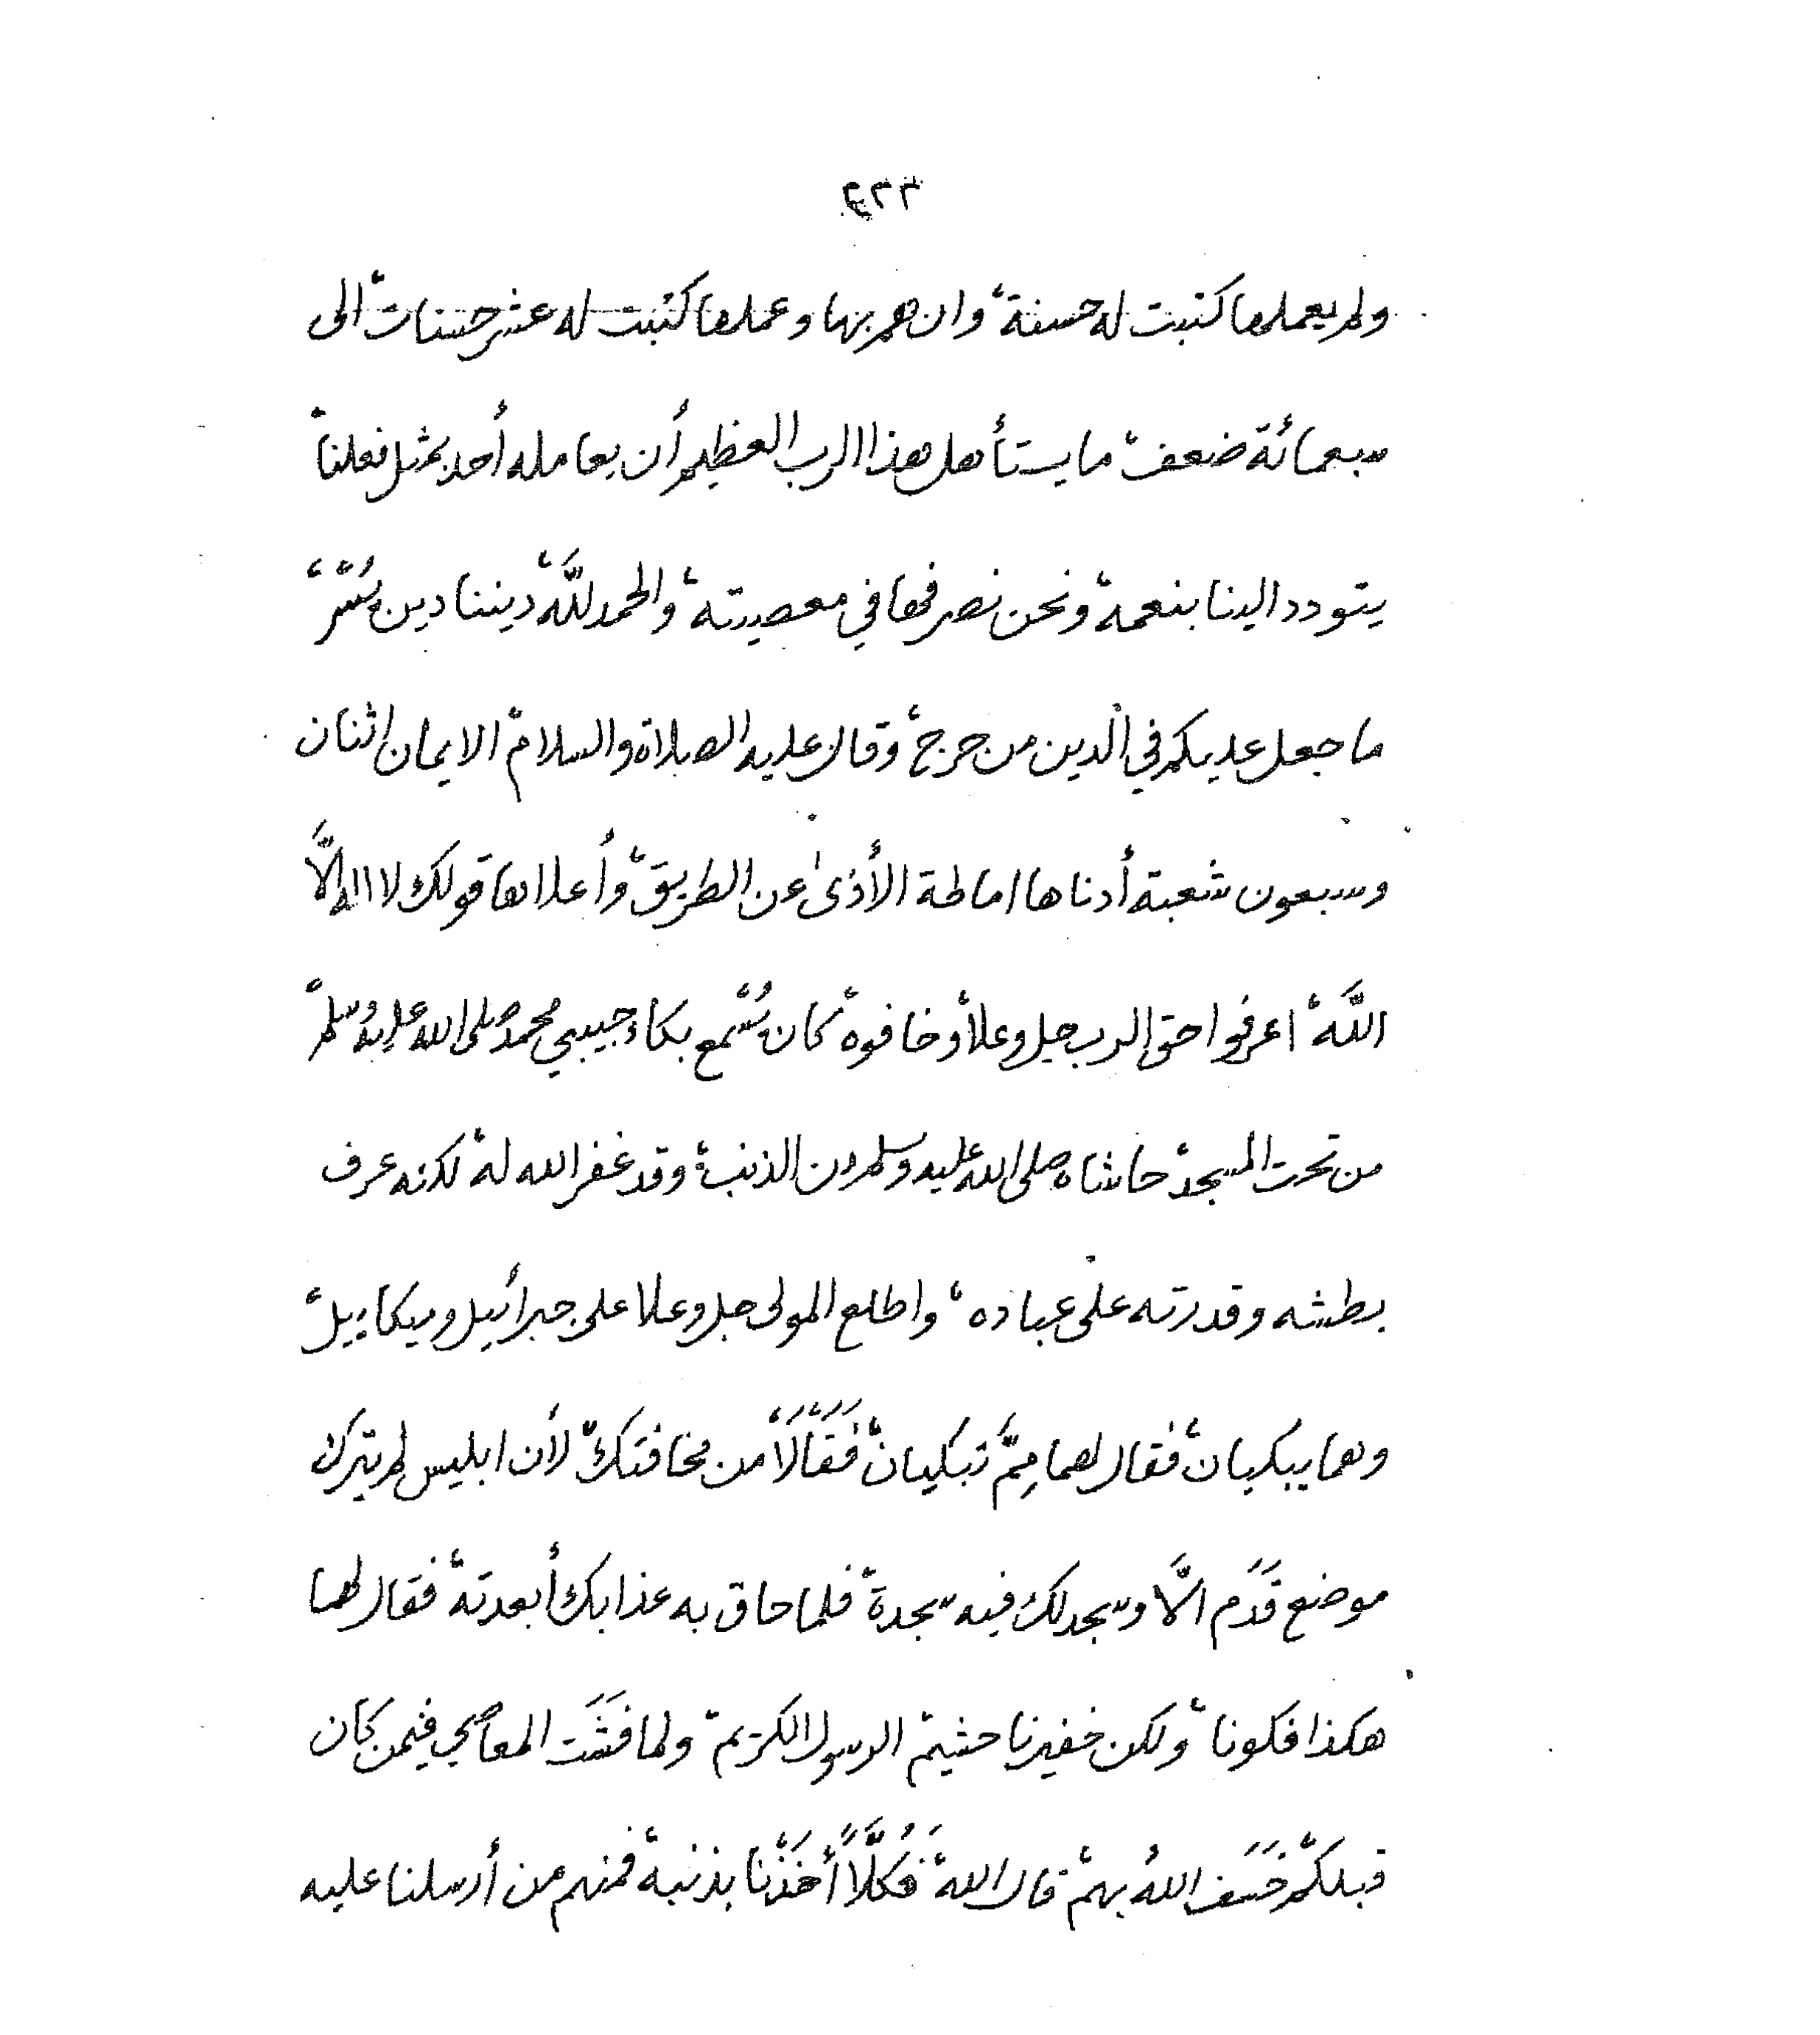 ولم يعملها كتبت له حسنةْ وان هم بها وعملها كتبت له عشر حسناتْ الى
سبعمائة ضعفْ ما يستأهل هذا الرب العظيم أن يعامله أحد بمثل فعلناْ
يتودد الينا بنعمهْ ونحن نصرفها في معصيتهْ والحمد للَّهْ ديننا دين يُسْرْ
ما جعل عليكم في الدين من حرجْ وقال عليه الصلاة والسلامْ الايمان اثنان
وسبعون شعبة أدناها اماطة الأذىٰ عن الطريقْ وأعلاها قولك لا اله الَّا
اللَّهْ اعرفوا حق الرب جل وعلاْ وخافوهْ كان يُسْمع بكاء حبيبي محمد صلى الله عليه وسلمْ
من تحت المسجدْ حاشاه صلى الله عليه وسلم من الذنبْ وقد غفر الله لهْ لكنه عرف
بطشه وقدرته على عبادهْ واطلع المولى جل وعلا على جبرائيل وميكائيلْ
وهما يبكيانْ فقال لهما مِمَّ تبكيانْ فَقَالَاْ من مخافتكْ لأن ابليس لم يترك
موضع قَدَم الَّا وسجد لك فيه سجدةْ فلما حاق به عذابك أبعدتهْ فقال لهما
هكذا فكوناْ ولكن خفيرنا حشيمْ الرسول الكريمْ ولما فَشَت المعاصي فيمن كان
قبلكمْ خَسَف اللهُ بهمْ قال اللهْ فَكُلَّاً أَخَذْنا بذنبهْ فمنهم من أرسلنا عليه